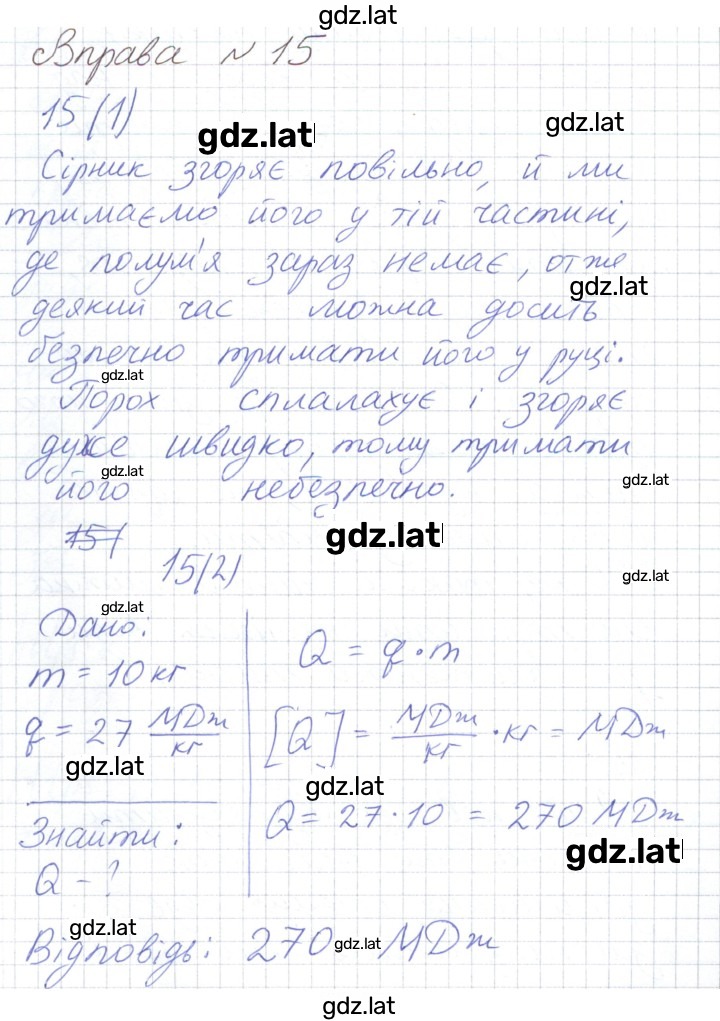 gdz.lat
Вправа № 15
15(1)
gdz.lat
gdz.lat
Сірник згоряє повільно, й ми
тримаємо його у тій частині,
де полум'я зараз немає, отже
gdz.lat
деякий час можна досить
безпечно тримати його у руці.
gdz.lat
Порох сплалахує і згоряє
дуже швидко, тому тримати
gdz.lat
його небезпечно.
gdz.lat
15(
gdz.lat
15(2)
gdz.lat
gdz.lat
Дано:
m = 10 кг
q = 27 МДж/кг
gdz.lat
Знайти:
Q - ?
Q = q · m
[Q] = МДж/кг · кг = МДж
gdz.lat
Q = 27 · 10 = 270 МДж
gdz.lat
gdz.lat
Відповідь: 270 МДж
gdz.lat
gdz.lat